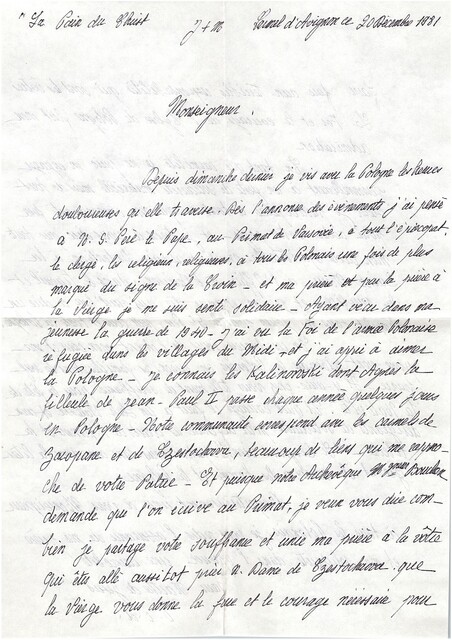 " La Paix du Christ J + M Carmel d'Avignon ce 20 Décembre 1981
Monseigneur.
Depuis dimanche dernier je vis avec la Pologne les heures
douloureuses qu'elle traverse. Dès l'annonce des événements j'ai pensé
à N. S. Père le Pape, au Primat de Varsovie, à tout l'épiscopat,
le clergé, les religieux, religieuses, à tous les Polonais une fois de plus
marqué du signe de la Croix - et ma prière et par la prière à
la Vierge je me suis senti solidaire - Ayant vécu dans ma
jeunesse la guerre de 1940 - j'ai vu la Foi de l'armée Polonaise
réfugiée dans les villages du Midi, et j'ai appris à aimer
la Pologne - Je connais les Kalinowski dont Agnès la
filleule de Jean-Paul II passe chaque année quelques jours
en Pologne - Notre communauté correspond avec les carmels de
Zacopane et de Czestochowa, beaucoup de liens qui me rappro-
che de votre Patrie - Et puisque notre Archevêque
demande que l'on écrive au Primat, je veux vous dire com-
bien je partage votre souffrance et unie ma prière à la vôtre
qui êtes allé aussitôt prier N. Dame de Czestochowa. que
la Vierge vous donne la force et le courage nécessaire pour